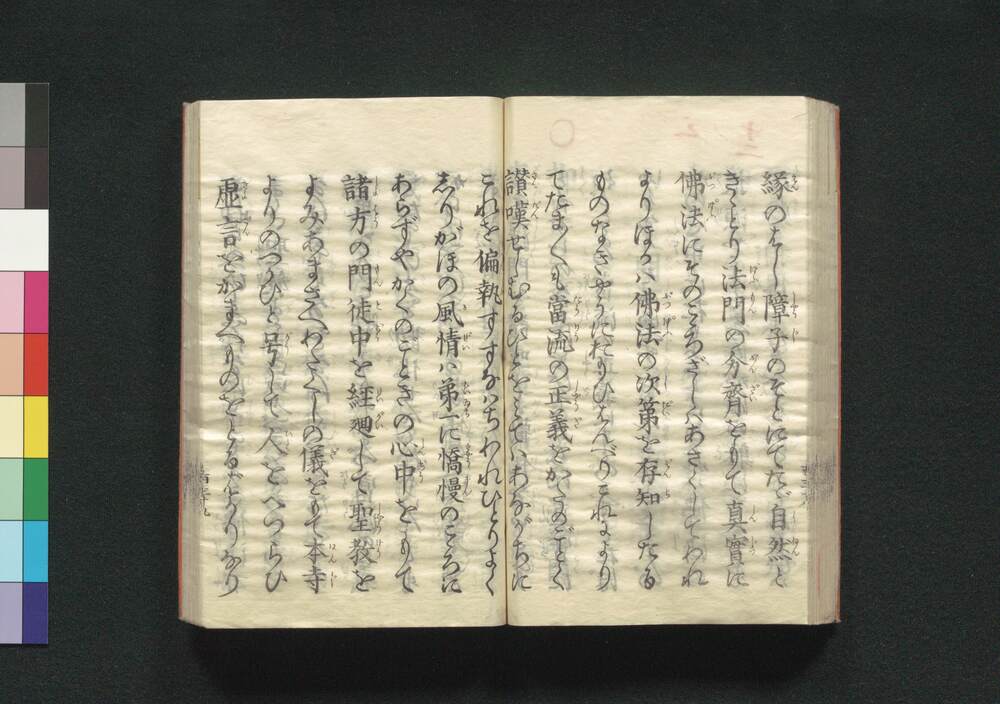 縁のはし障子のそとにてたゞ自然と
きゝとり法門の分齊をもて真實に
佛法にそのこゝろざしハあさくしてわれ
よりほかハ佛法の次第を存知したる
ものなきやうにおもひはんべりこれによりて
てたまくも當流の正義をかたのごとく
讃嘆せしむるひとをみてハあながちに
これを偏執すすなハちわれひとりよく
しりがほの風情ハ第一に憍慢のこゝろに
あらずやかくのごときの心中をもて
諸方の門徒中を經廻して聖教を
よみあまさへわたくしの儀をもて本寺
よりのつかひと号して人をへつらひ
虚言をかまへものをとるばかりなり